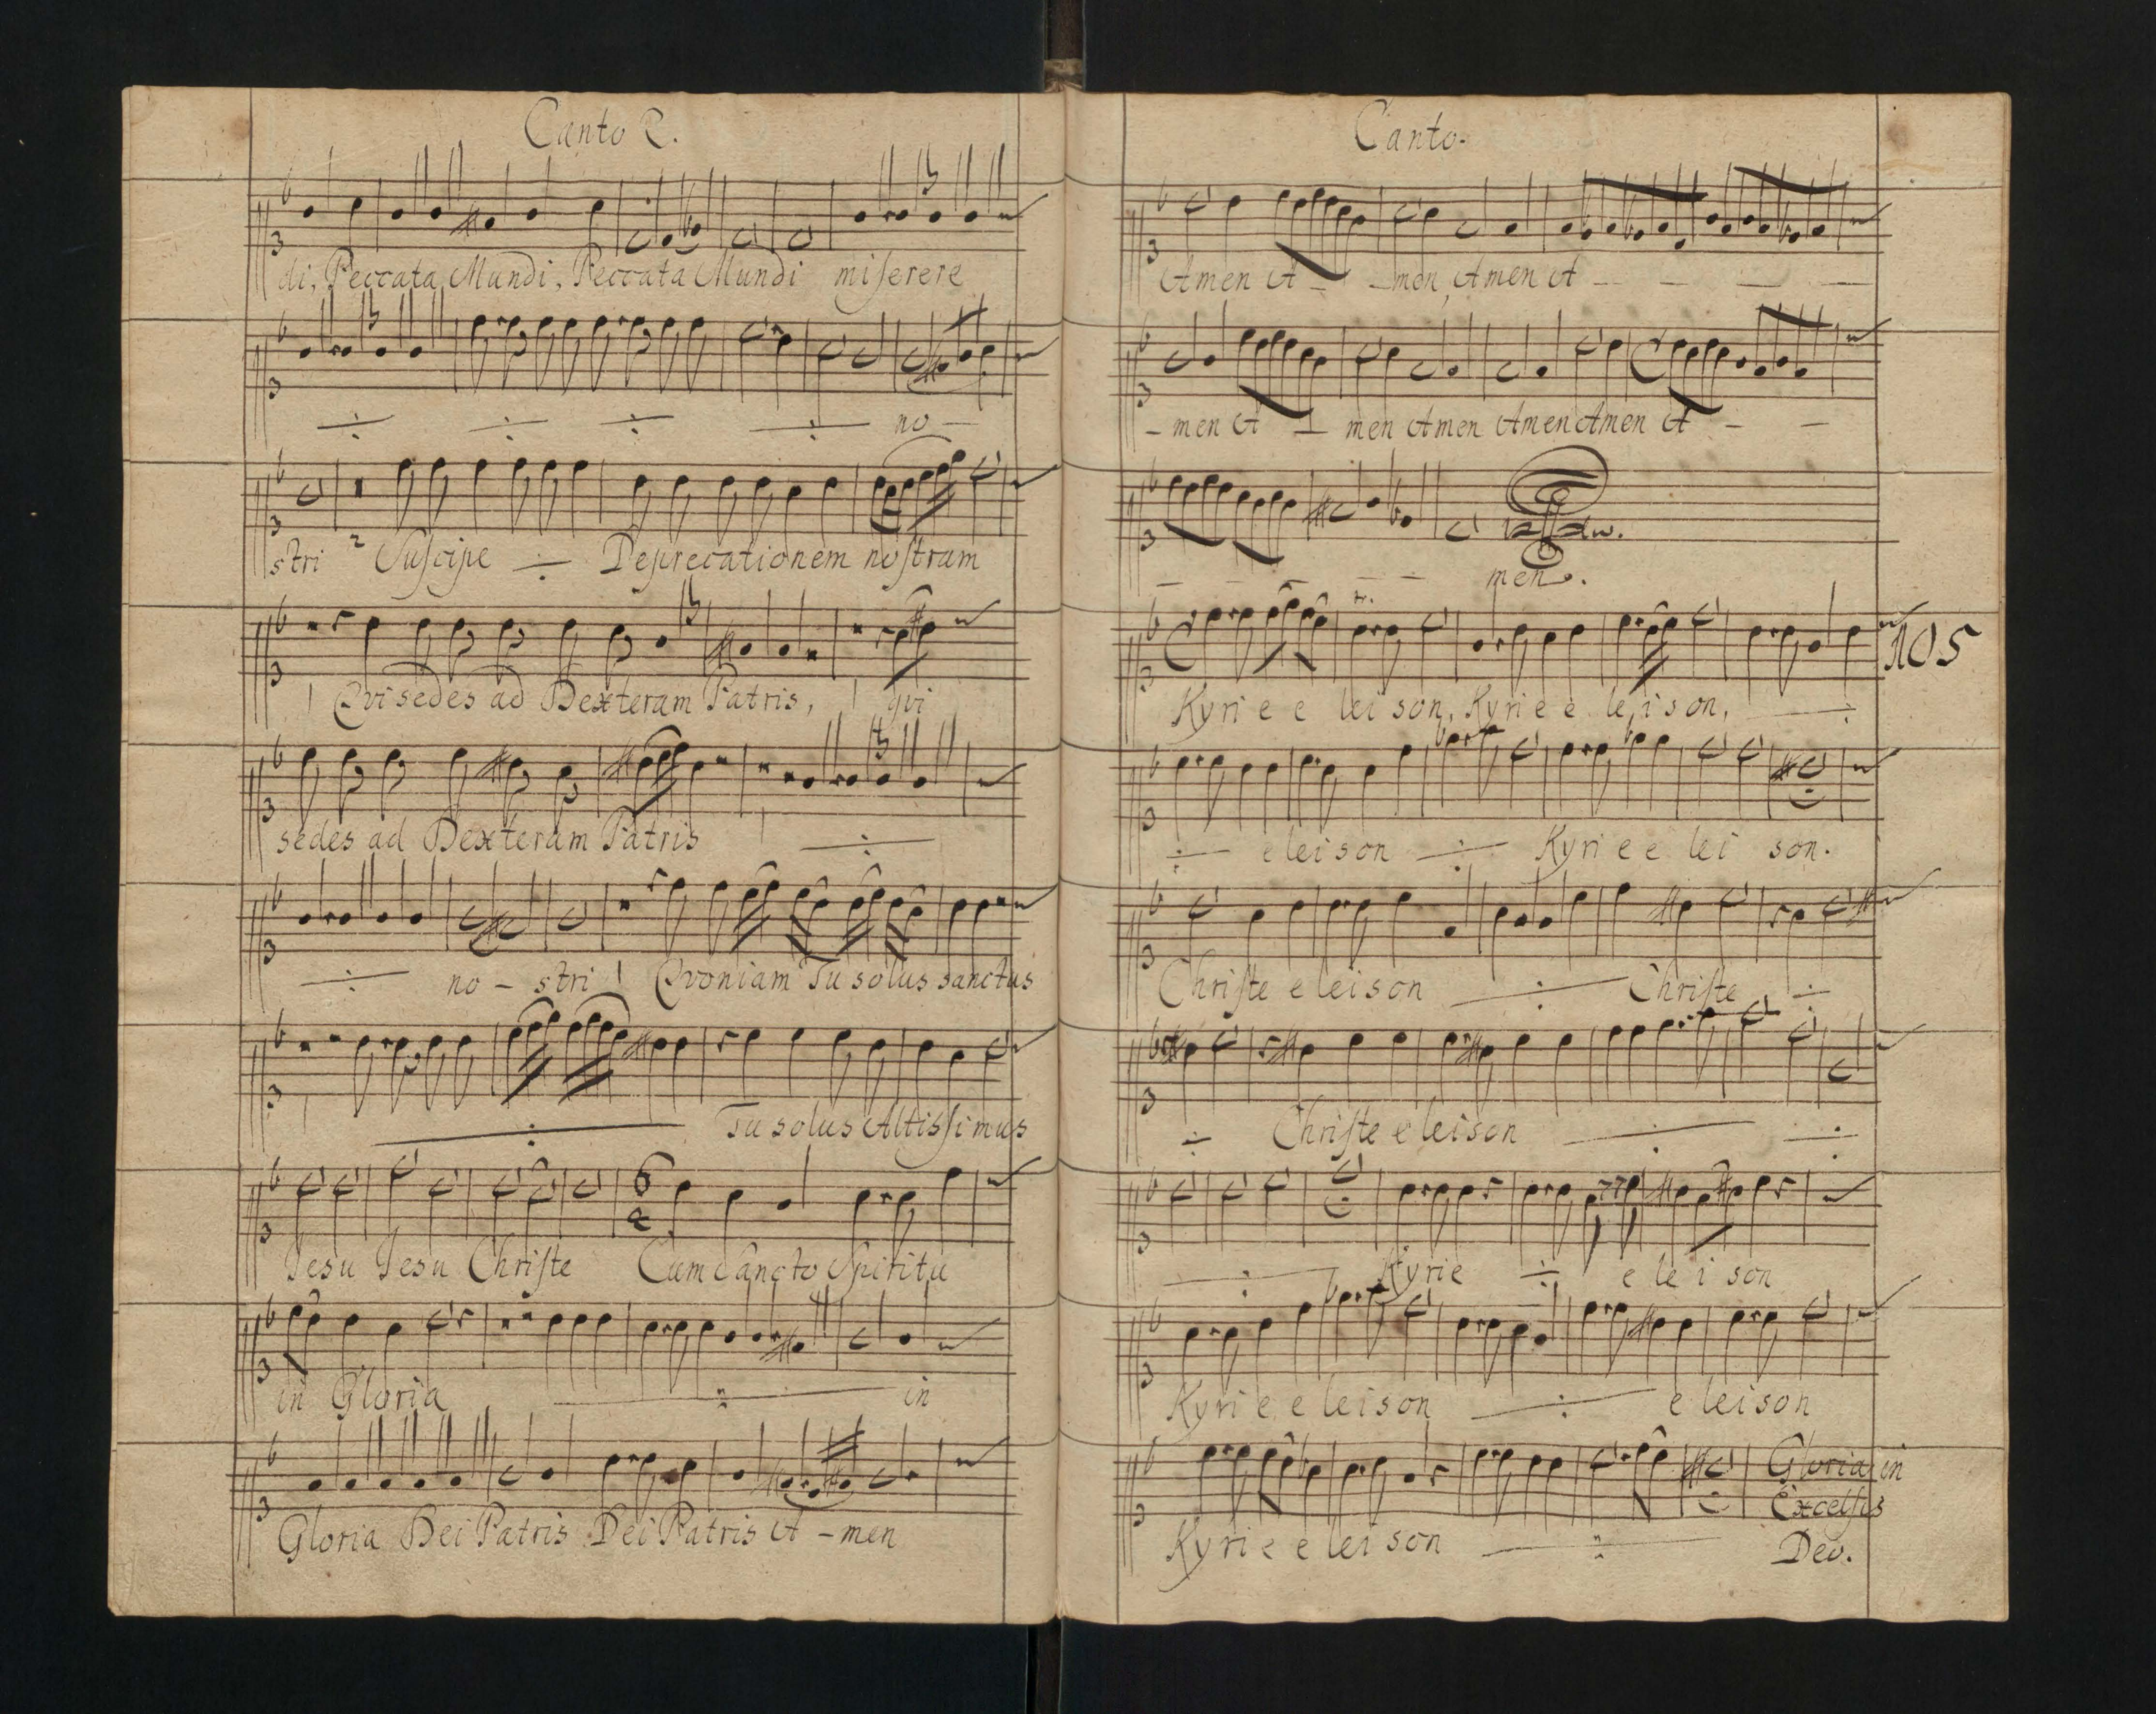 Canto 2.
di, Peccata Mundi, Peccata Mundi miſerere
no -
stri 2 Suſcipe Deprecationem noſtram
Qvi sedes ad Dexteram Patris, qvi
sedes ad Dexteram Patris
no - stri Qvoniam Tu solus sanctus
Tu solus Altisſimus
Jesu Jesu Chriſte Cum Sancto Spiritu
in Gloria in
Gloria Dei Patris Dei Patris A - men
Canto.
Amen A - - men, Amen A - - - -
- men A - men Amen Amen Amen A - -
- - - - - men.
105
Kyri e e lei son, Kyri e e le i s on,
e lei son Kyri e e lei son.
Chriſte e lei s on Chriſte
Chriſte e lei son
Kyrie e le i son
Kyri e e lei s on e lei son
Kyri e e lei son
Gloria in
Excelſis
Deo.